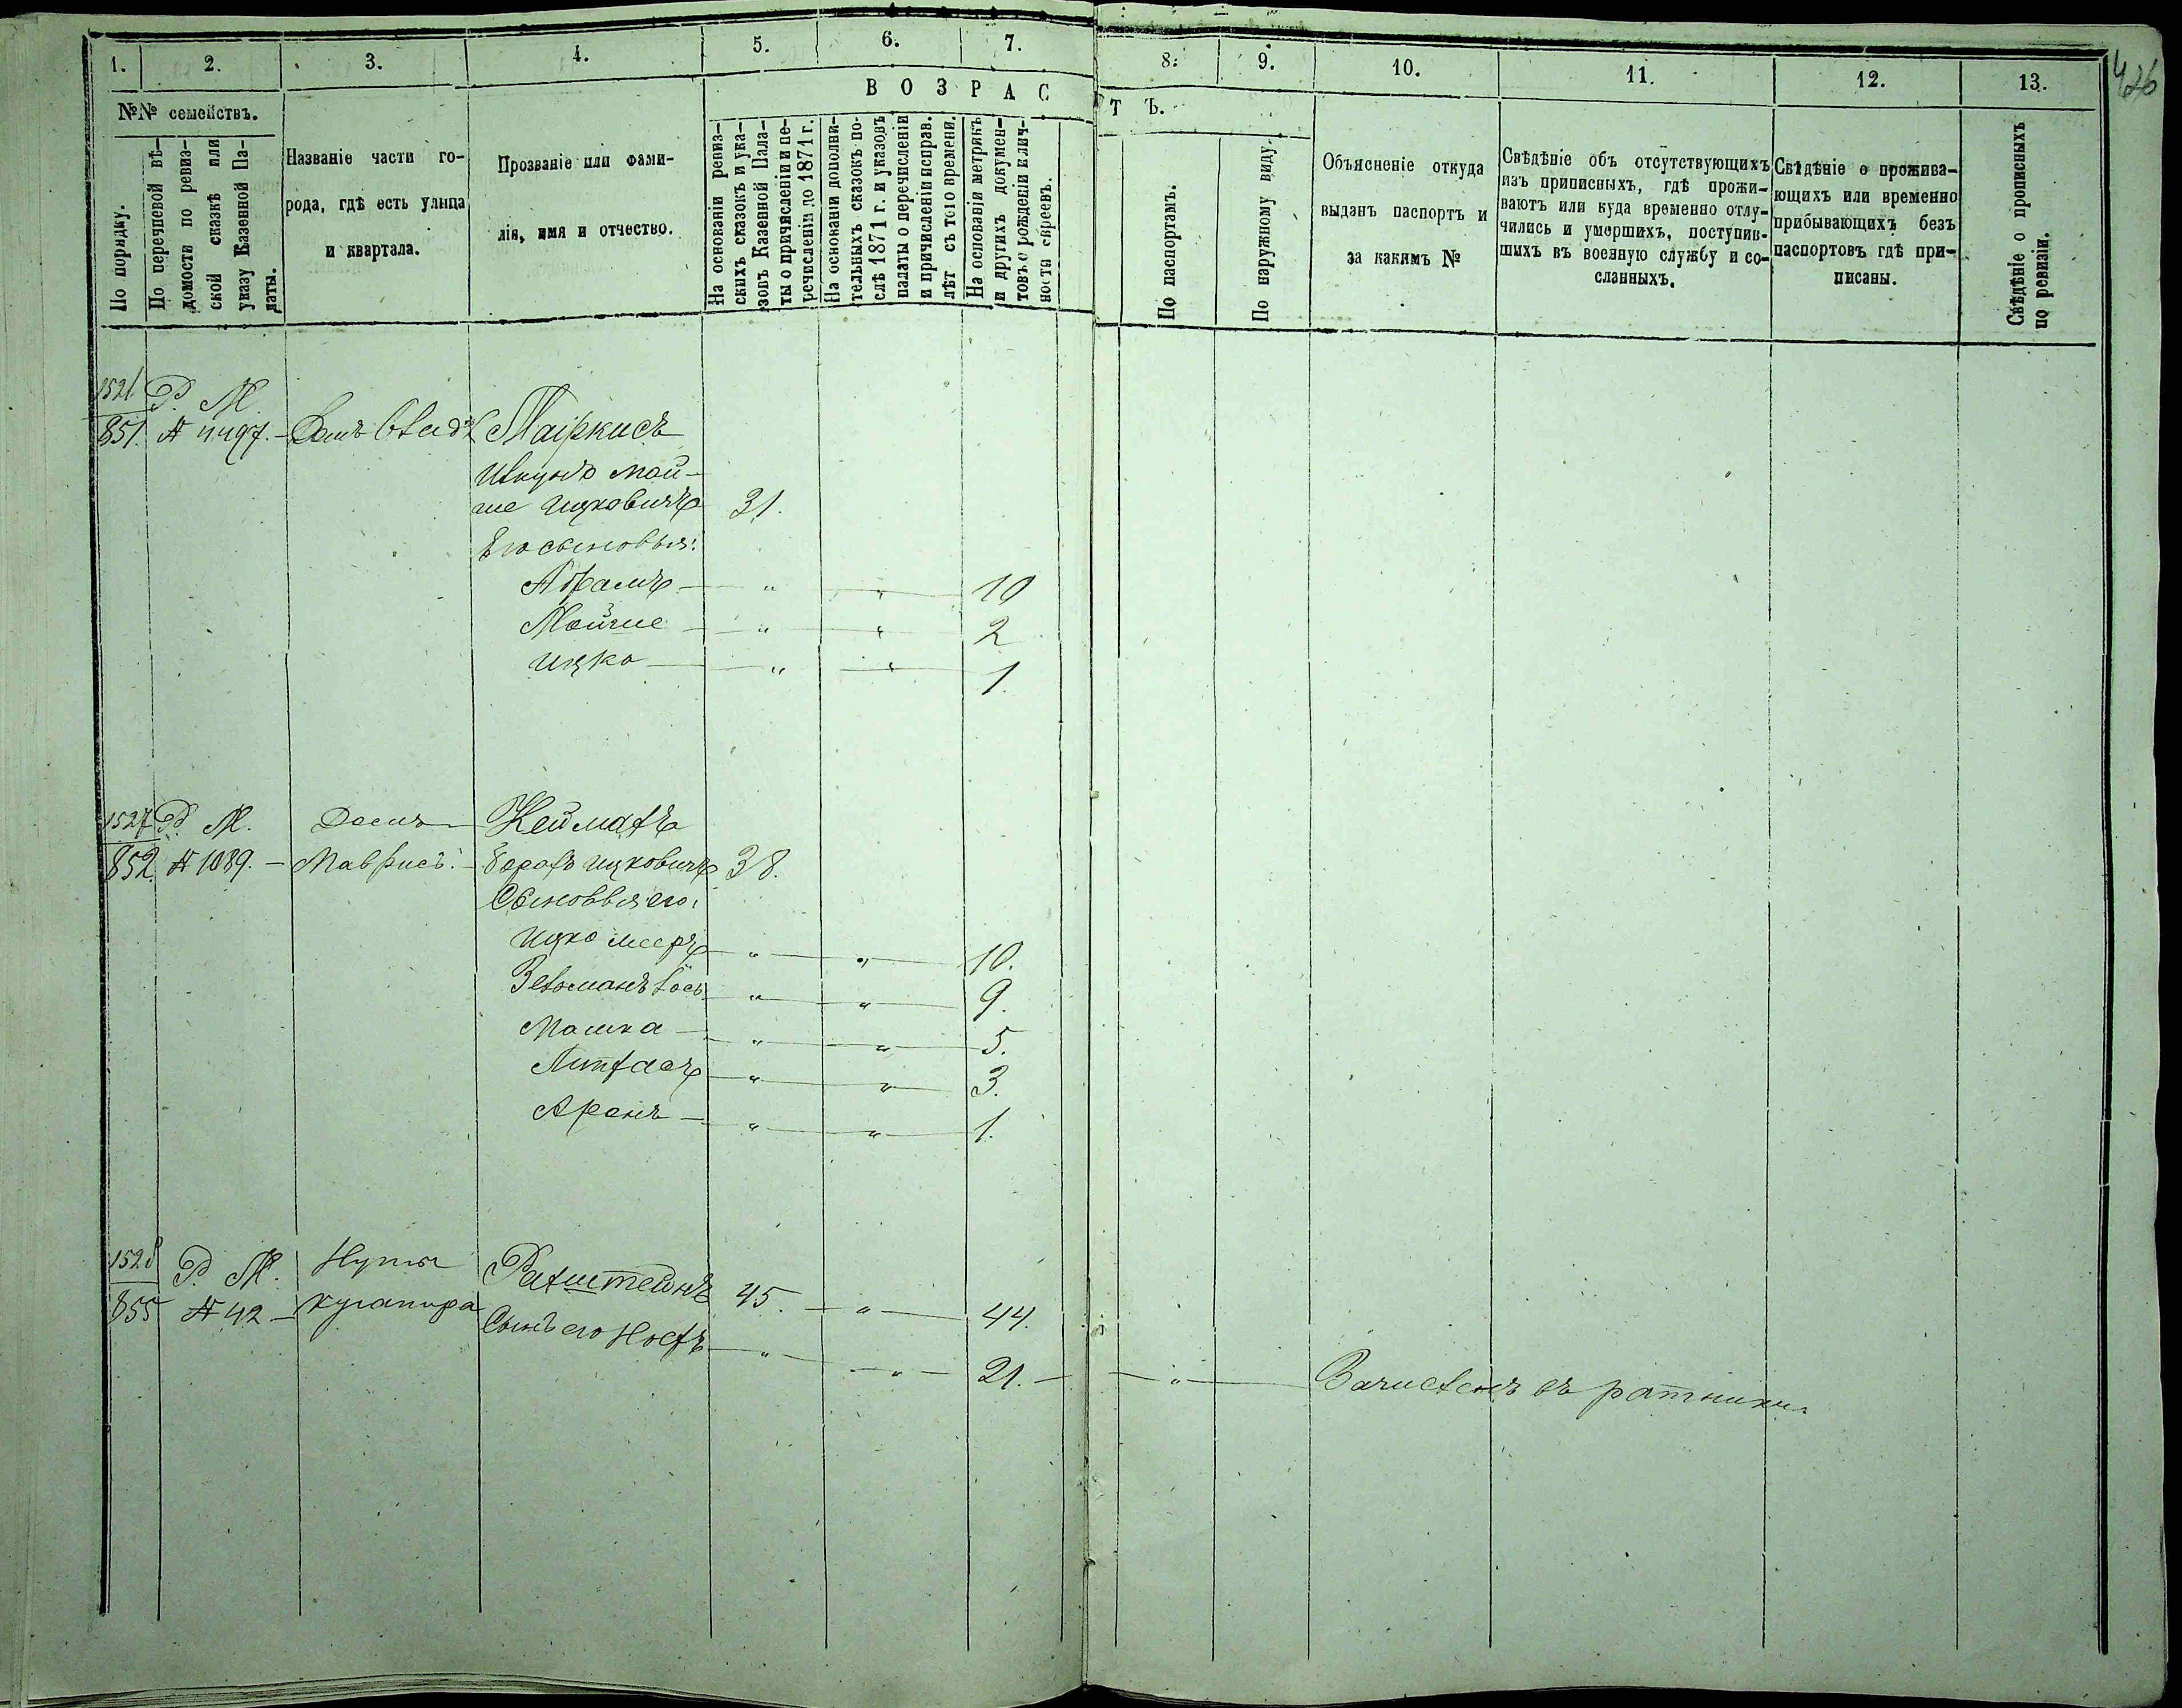 426
1. 2. 3. 4. 5. 6. 7. 8. 9. 10. 11. 12. 13.
№№ семействъ.
ВОЗРАСТЪ.
По порядку.
По перечневой вѣ-
домости по ревиз-
ской сказкѣ или
указу Казенной Па-
латы.
Названіе части го-
рода, гдѣ есть улица
и квартала.
Прозваніе или фами-
лія, имя и отчество.
На основаніи ревиз-
скихъ сказокъ и ука-
зовъ Казенной Пала-
ты о причисленіи и пе-
речисленіи до 1871 г.
На основаніи дополни-
тельныхъ сказокъ по-
слѣ 1871 г. и указовъ
палаты о перечисленіи
и причисленіи исправ.
лѣт съ того времени.
На основаніи метрикъ
и другихъ докумен-
товъ о рожденіи и лич-
ности евреевъ.
По паспортамъ.
По наружному виду.
Объясненіе откуда
выданъ паспортъ и
за какимъ №
Свѣдѣніе объ отсутствующихъ
изъ приписныхъ, гдѣ прожи-
ваютъ или куда временно отлу-
чились и умершихъ, поступив-
шихъ въ военную службу и со-
сланныхъ.
Свѣдѣніе о прожива-
ющихъ или временно
прибывающихъ безъ
паспортовъ гдѣ при-
писаны.
Свѣдѣніе о прописныхъ
по ревизіи.
1521 Р. М.
851. № 4497. - Домъ Маіркисъ
Мой-
ше Ицковичъ 31.
Его сыновья:
Абрамъ - " - " - 10
Мойше - " - " - 2
Ицко - " - " - 1.
1527 Р. М. Домъ Неймаръ
852. № 1089. - Маврисъ. - Борохъ Ицковичъ 38.
Сыновья его:
Ицко Мееръ - " - " - 10.
Зельманъ Іось - " - " - 9.
Мошка - " - " - 5.
- " - " - 3.
Аронъ - " - " - 1.
1528 Р. М. Нуты Ратштейнъ 45. - " - 44.
855 № 42 - Сынъ его - " - " - 21. - " - Зачисленъ въ ратники.